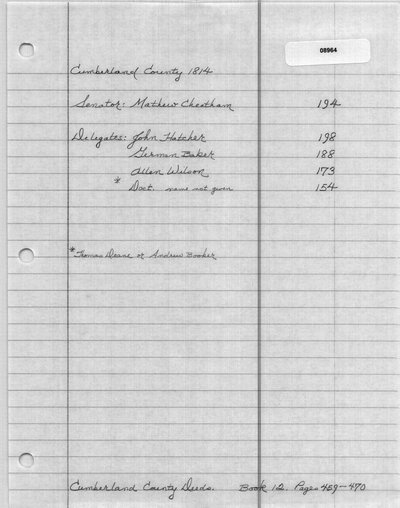 08964
Cumberland County 1814
Senator: Mathew Cheatham 194
Delegates: John Hatcher 198
German Baker 188
Allen Wilson 173
* Doct. name not given 154
* Thomas Deane or Andrew Booker
Cumberland County Deeds. Book 12. Pages 459-470